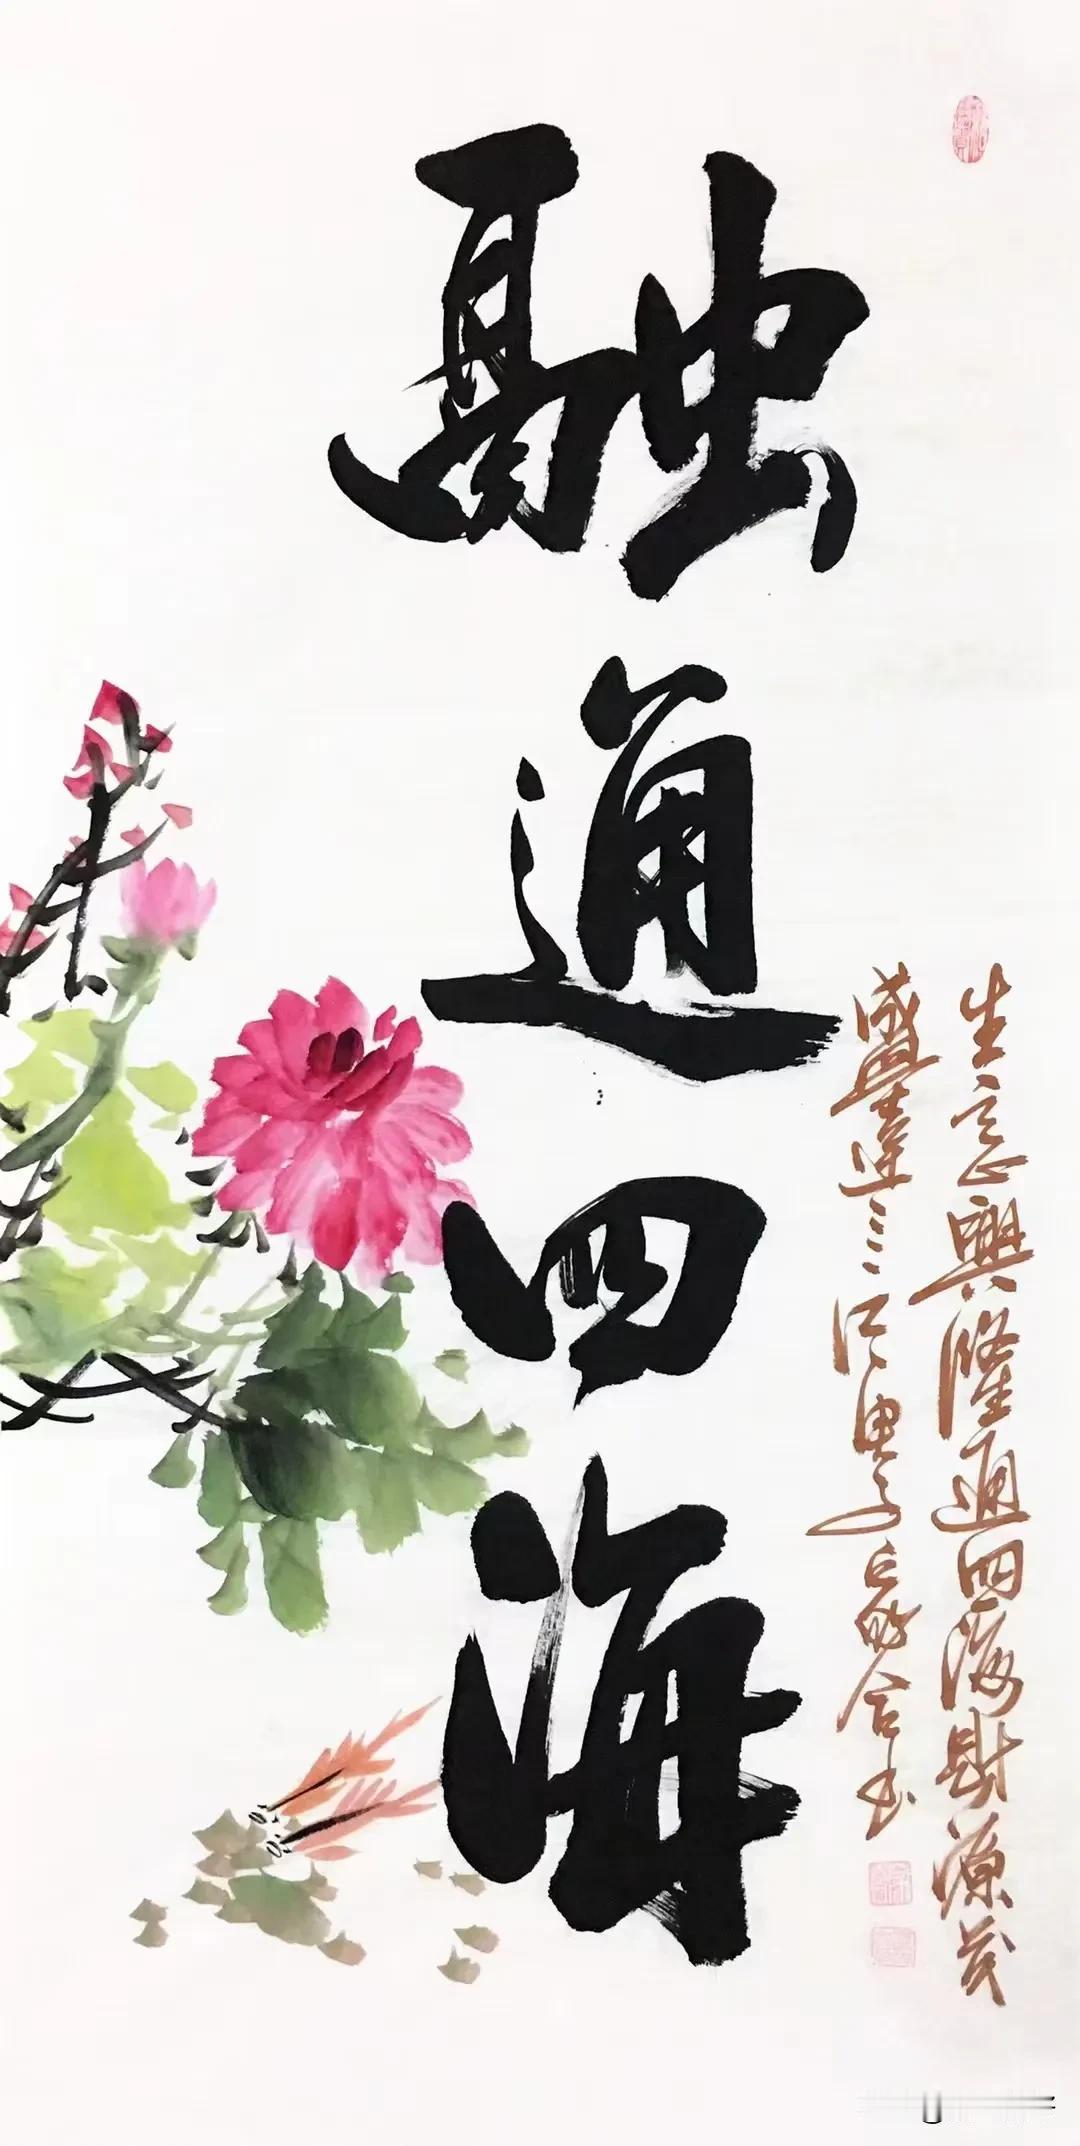 融通四海
生意興隆通四海財源茂
盛達三江 書